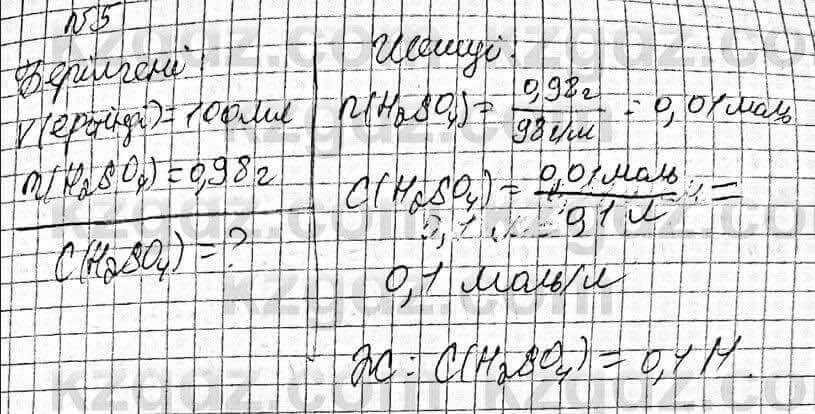 №5
Берілгені:
V(ерітінді) = 100мл
m(H₂SO₄) = 0,98г
C(H₂SO₄) = ?
Шешуі:
n(H₂SO₄) = 0,98г / 98г/м = 0,01моль
C(H₂SO₄) = 0,01моль / 0,1 л =
0,1 моль/л
Ж: C(H₂SO₄) = 0,1 М.
kzgdz.com